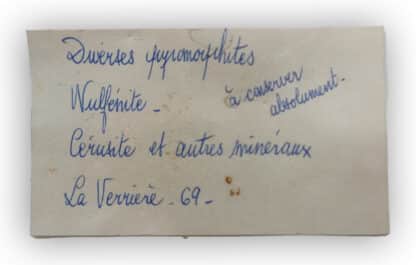 Diverses pyromorphites
Wulfénite -
à conserver
absolument -
Cérusite et autres minéraux
La Verrière - 69 -